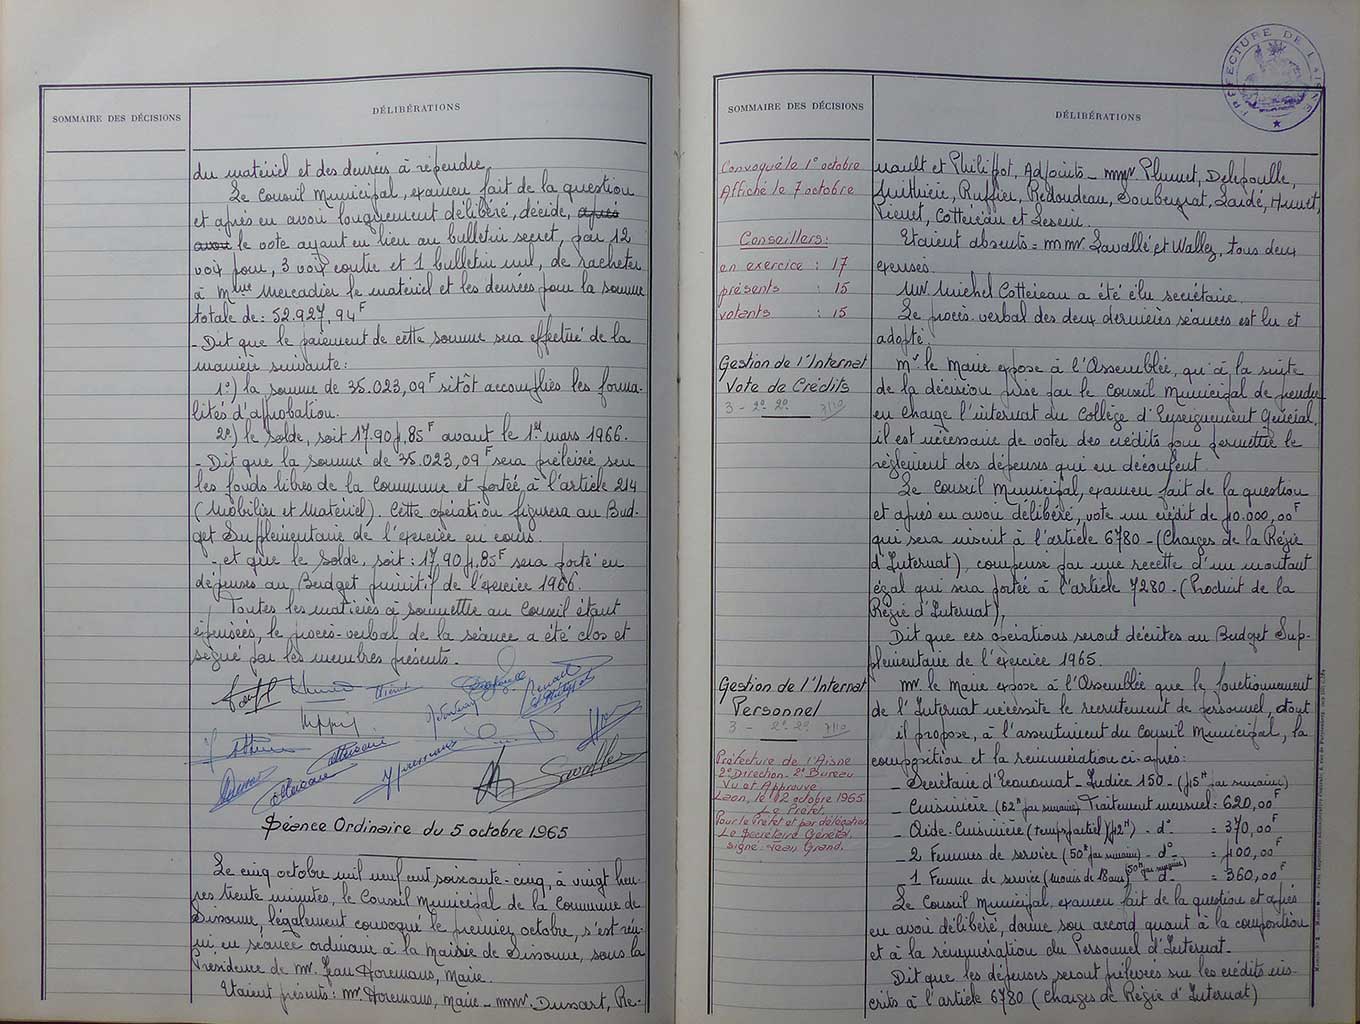 SOMMAIRE DES DÉCISIONS
DÉLIBÉRATIONS
du matériel et des denrées à répendre,
Le Conseil Municipal, examen fait de la question
et après en avoir longuement délibéré, décide, après
avoir le vote ayant eu lieu au bulletin secret, par 12
voix pour, 3 voix contre et 1 bulletin nul, de racheter
à Mme Mercadier le matériel et les denrées pour la somme
totale de : 52.927,94F
- Dit que le paiement de cette somme sera effectué de la
manière suivante :
1°) la somme de 35.023,09F sitôt accomplies les forma-
lités d'approbation.
2°) le solde, soit 17.904,85F avant le 1er mars 1966.
- Dit que la somme de 35.023,09F sera prélevée sur
les fonds libres de la Commune et portée à l'article 214
(Mobilier et Matériel). Cette opération figurera au Bud-
get Supplémentaire de l'exercice en cours.
- et que le solde, soit : 17.904,85F sera porté en
dépenses au Budget primitif de l'exercice 1966.
Toutes les matières à soumettre au Conseil étant
épuisées, le procès-verbal de la séance a été clos et
signé par les membres présents.
Séance Ordinaire du 5 octobre 1965
Le cinq octobre mil neuf cent soixante-cinq, à vingt heu-
res trente minutes, le Conseil Municipal de la Commune de
Sissonne, légalement convoqué le premier octobre, s'est réu-
ni en séance ordinaire à la Mairie de Sissonne, sous la
Présidence de Mr. Jean Horemans, Maire.
Etaient présents : Mr. Horemans, Maire - MMr. Dussart, Re-
PRÉFECTURE DE L'AISNE
SOMMAIRE DES DÉCISIONS
DÉLIBÉRATIONS
Convoqué le 1° octobre
Affiché le 7 octobre
Conseillers :
en exercice : 17
présents : 15
votants : 15
nault et Philippot, Adjoints - MMr. Plumet, Delepoulle,
Ruffier, Redoudeau, Soubeyrat, Laidé, Hunet,
Vienet, Cottereau et
Etaient absents = MMr. Lavallé et Wallez, tous deux
excusés.
Mr. Michel Cottereau a été élu secrétaire.
Le procès verbal des deux dernières séances est lu et
adopté.
Gestion de l'Internat
Vote de Crédits
3 - 2°. 2°. 7/10
Mr. le Maire expose à l'Assemblée, qu'à la suite
de la décision prise par le Conseil Municipal de prendre
en charge l'internat du Collège d'Enseignement Général,
il est nécessaire de voter des crédits pour permettre le
règlement des dépenses qui en découlent.
Le Conseil Municipal, examen fait de la question
et après en avoir délibéré, vote un crédit de 40.000,00F
qui sera inscrit à l'article 6780 - (Charges de la Régie
d'Internat), compensé par une recette d'un montant
égal qui sera portée à l'article 7280 - (Produit de la
Régie d'Internat),
Dit que ces opérations seront décrites au Budget Sup-
plémentaire de l'exercice 1965.
Gestion de l'Internat
Personnel
3 - 2°. 2°. 7/10
Préfecture de l'Aisne
2° Direction - 2° Bureau
Vu et Approuvé
Laon, le 12 octobre 1965
Le Préfet,
Pour le Préfet et par délégation
Le Secrétaire Général,
signé : Jean Grand.
Mr. le Maire expose à l'Assemblée que le fonctionnement
de l'Internat nécessite le recrutement de personnel, dont
il propose, à l'assentiment du Conseil Municipal, la
composition et la rémunération ci-après :
- Secrétaire d'Economat - Indice 150 - (45H par semaine)
- Cuisinière (62H par semaine) Traitement mensuel = 620,00F
- Aide-Cuisinière (temps partiel) (42H) - d° = 370,00F
- 2 Femmes de service (50H par semaine) - d° = 400,00F
- 1 Femme de service (moins de 18 ans) (50H par semaine) d° = 360,00F
Le Conseil Municipal, examen fait de la question et après
en avoir délibéré, donne son accord quant à la composition
et à la rémunération du Personnel d'Internat.
Dit que les dépenses seront prélevées sur les crédits ins-
crits à l'article 6780 (Charges de Régie d'Internat)